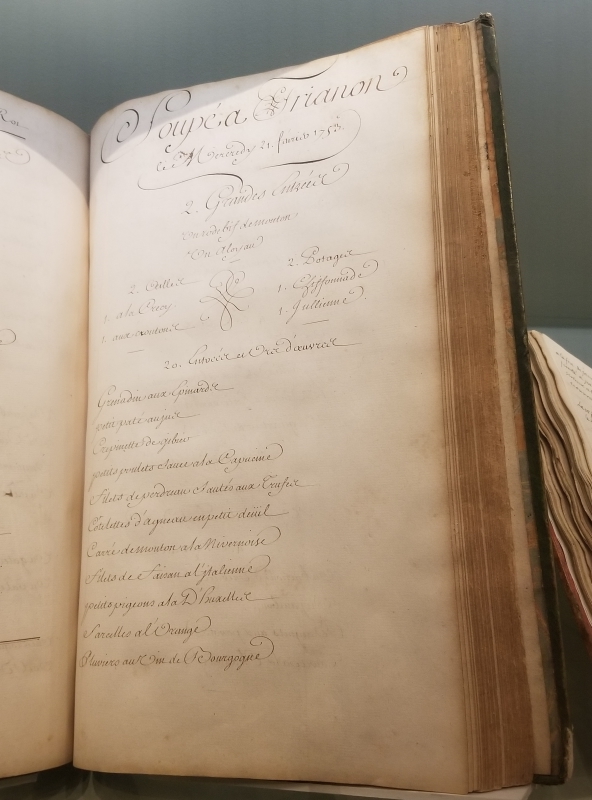 Roi
Soupé a Trianon
le Mercredy 21. Janvier 1753.
2. Grandes Entrées
Un rôdebif de mouton
Un Aloyau
2. Oeilles
2. Potages
1. a la Crecy
1. Chiffonnade
1. aux croutons
1. Jullienne
20. Entrées et Ors d'œuvres
Grenadin aux Epinards
petit paté au jus
Crepinettes de gibier
petits poulets Sauce a la Capucine
Filets de perdreau Sautés aux Trufes
Cotelettes d'agneau en petit deüil
Carré de mouton a la Nivernoise
Filets de Faisan a l'jtalienne
petits pigeons a la D'huxelles
Sarcelles a l'Orange
Pluviers au Vin de Bourgogne